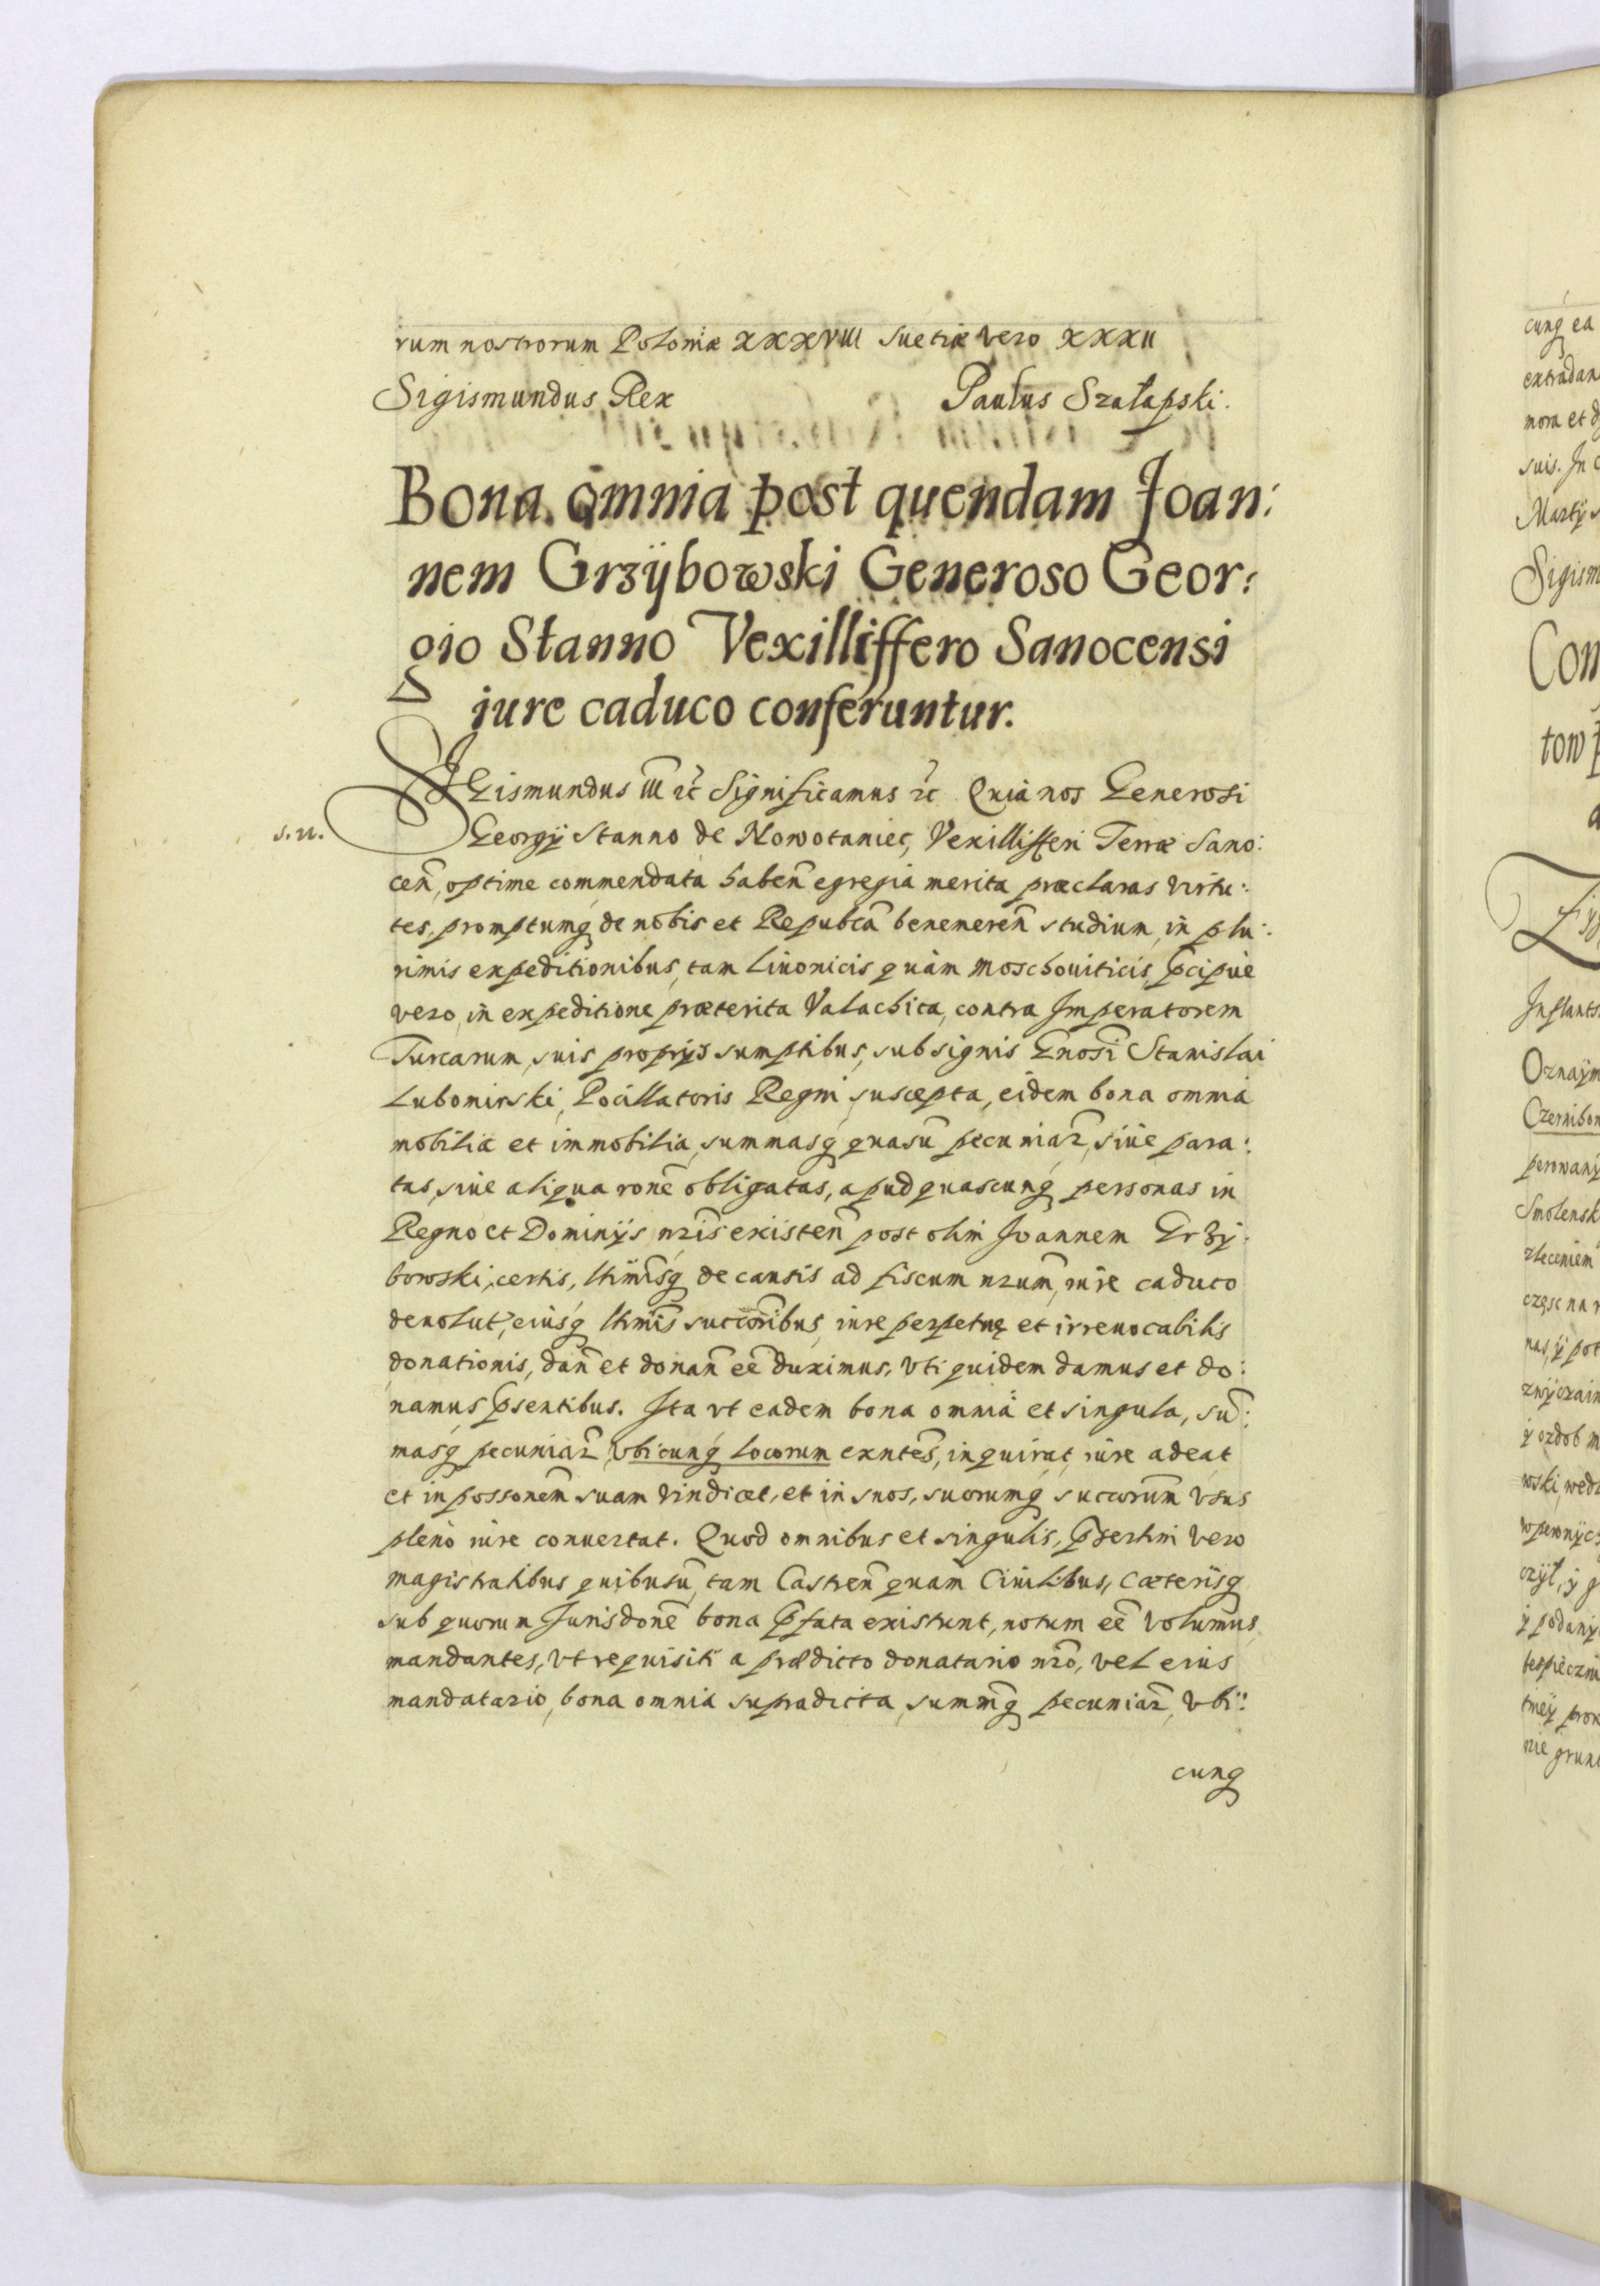 rum nostrorum Poloniæ XXXVIII Suetiæ vero XXXII
Sigismundus Rex Paulus Szałapski.
Bona omnia post quendam Joan:
nem Grzÿbowski Generoso Geor:
gio Stanno Vexilliffero Sanocensi
jure caduco conferuntur.
SIGismundus III ꝛc̃ Significamus ꝛc̃ Quia nos Generosi
s.n.
Georgÿ Stanno de Nowotaniec, Vexillifferi Terræ Sano:
ceñ, optime commendata habeñ egregia merita præclaras virtu:
tes, promptumq de nobis et Repubcã benemereñ studium, in plu:
rimis expeditionibus, tam Liuonicis quàm Moschouiticis, p̃cipuè
vero, in expeditione præterita Valachica, contra Imperatorem
Turcarum, suis proprÿs sumptibus, sub signis Gnosĩ Stanislai
Lubomirski, Pocillatoris Regni, suscepta, eidem bona omnia
mobilia et immobilia, summasq́ quasũ pecuniaꝝ, siue para:
tas, siue aliqua rone obligatas, apud quascunq́ personas in
Regno et Dominÿs nris̃ existeñ post olim Joannem Grzÿ:
bowski, certis, ltimisq́ de causis ad fiscum nrum̃, iure caduco
deuolut, eiusq́ ltimis̃ succoribus̃, iure perpetuę et irreuocabilis
donationis, dañ et donañ eẽ duximus, vti quidem damus et do:
namus p̃sentibus. Ita vt eadem bona omnia et singula, sum̃:
masq́ pecuniaꝝ, vbicunq́ locorum exntes̃, inquirat, iure adeat
et in possonem̃ suam vindicet, et in suos, suorumq́ succorum̃ vsus
pleno iure conuertat. Quod omnibus et singulis, p̃sertim vero
magistratibus quibusuĩ, tam Castreñ quam Ciuilibus, cæterisq́
sub quorum Jurisdone bona p̃fata existunt, notum eẽ volumus,
mandantes, vt requisiti a prædicto donatario nrõ, vel eius
mandatario, bona omnia supradicta, summasq́ pecuniaꝝ, vbi:
cunq́
cunq ea
extradan
mora et
suis. In
Martÿ
Sigism
Con
tow
Inflants
Oznaÿm
Czernibor
perowanÿ
Smolensk
zleceniem
częsc na
nas, ÿ pot
zwÿczain
ÿ ozdob
wski, wed
ÿ podanÿ